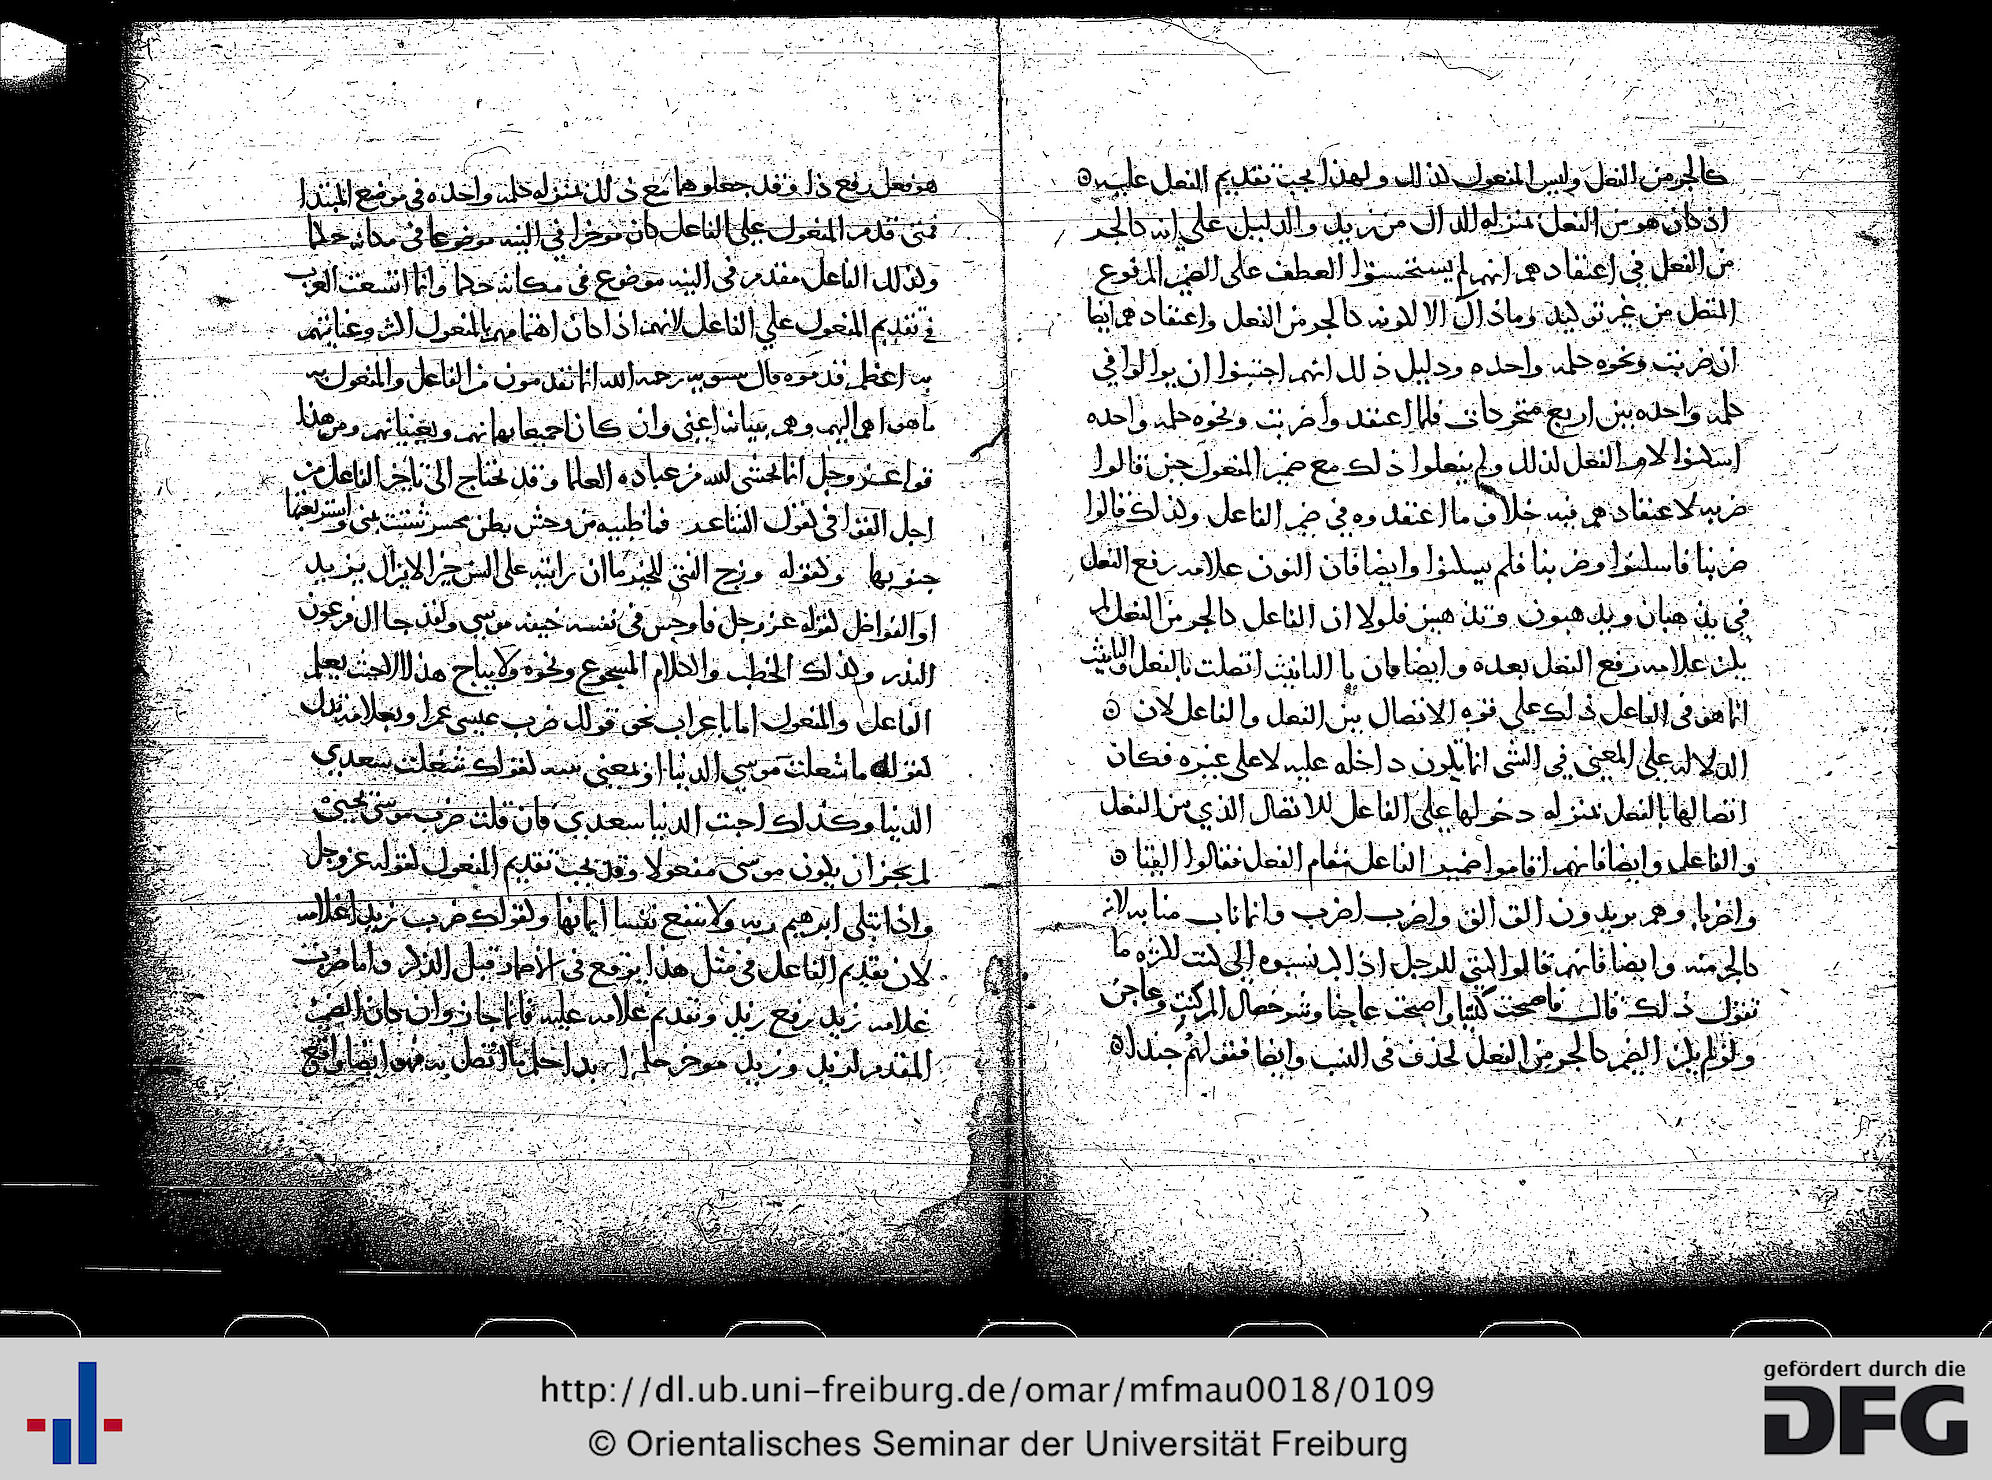 كالجزمن الفعل وليس المفعول كذلك ولهذا يجب تقديم الفعل عليه
اذ كان هو من الفعل بمنزله الدال من زيد والدليل على انه كالجز
من الفعل في اعتقادهم انهم لم يستحسنوا العطف على الضمير المرفوع
المتصل من غير توكيد وماذاك الا لكونه كالجز من الفعل واعتقادهم ايضا
ان ضربت ونحوه كلمه واحده ودليل ذلك انهم اجتنبوا ان يوالوا في
كلمه واحده بين اربع متحركات فلما اعتقدوا ضربت ونحوه كلمه واحده
اسكنوا لام الفعل لذلك ولم يفعلوا ذلك مع ضمير المفعول حين قالوا
ضربه لاعتقادهم فيه خلاف ما اعتقدوه في ضمير الفاعل ولذلك قالوا
ضربنا فاسكنوا وضربنا فلم يسكنوا وايضا فان النون علامه رفع الفعل
في يذهبان ويذهبون وتذهبين فلولا ان الفاعل كالجز من الفعل لم
يكن علامه رفع الفعل بعده وايضا فان تا التانيث اتصلت بالفعل والتانيث
انما هو في الفاعل ذلك على قوه الاتصال بين الفعل والفاعل لان
الدلاله على المعنى في الشي انما يكون داخله عليه لا على غيره فكان
اتصالها بالفعل بمنزله دخولها على الفاعل للاتصال الذي بين الفعل
والفاعل وايضا فانهم اقاموا ضمير الفاعل مقام الفعل فقالوا القيا
واضربا وهم يريدون الق الق واضرب اضرب وانما ناب منابه لانه
كالجز منه وايضا فانهم قالوا كنتي للرجل اذا كبر نسبوه الى كنت لكثره ما
تقول ذلك قال فاصبحت كنتيا واصبحت عاجنا وشر خصال المرء كنت وعاجن
ولو لم يكن الضمير كالجز من الفعل لحذف في النسب وايضا فقولهم حبذا
هو فعل رفع ذا وقد جعلوهما مع ذلك بمنزله كلمه واحده في موضع المبتدا
فمتى قدم المفعول على الفاعل كان موخرا في النيه موضوعا في مكانه حكما
وكذلك الفاعل مقدم في النيه موضوع في مكانه حكما وانما اتسعت العرب
في تقديم المفعول على الفاعل لانهم اذا كان اهتمامهم بالمفعول اكثر وعنايتهم
به اعظم قدموه قال سيبويه رحمه الله انما يقدمون من الفاعل والمفعول به
ما هو اهم اليهم وهم ببيانه اعنى وان كانا جميعا يهمانهم ويعنيانهم ومن هذا
قوله عز وجل انما يخشى لله من عباده العلما وقد تحتاج الى تاخر الفاعل من
اجل القوافي كقول الشاعر فما ظبيه من وحش بطن محسر تشتت بيني واستريعها
جنوبها وكقوله ورج الفتى للخير ما ان رايته على السن خيرا لا يزال يزيد
او الفواصل كقوله عز وجل فاوجس في نفسه خيفه موسى ولقد جا ال فرعون
النذر وكذلك الخطب والكلام المسجوع ونحوه ولا يباح هذا الا حيث يعلم
الفاعل والمفعول اما باعراب نحو قولك ضرب عيسى عمرا وبعلامه تدل
كقولك ما شغلت موسى الدنيا او بمعنى كقولك شغلت سعدي
الدنيا وكذلك احبت الدنيا سعدي فان قلت ضرب موسى يحيى
لم يجز ان يكون موسى مفعولا وقد يجب تقديم المفعول كقوله عز وجل
واذ ابتلى ابرهيم ربه ولا ينفع نفسا ايمانها وكقولك ضرب زيدا غلامه
لان تقديم الفاعل في مثل هذا يوقع في الاضمار قبل الذكر واما ضرب
غلامه زيد برفع زيد وتقديم غلامه عليه فانما جاز وان كان الضمير
المقدم لزيد وزيد موخر لما اتصل به فهو ايضا واقع
http://dl.ub.uni-freiburg.de/omar/mfmau0018/0109
© Orientalisches Seminar der Universität Freiburg
gefördert durch die
DFG